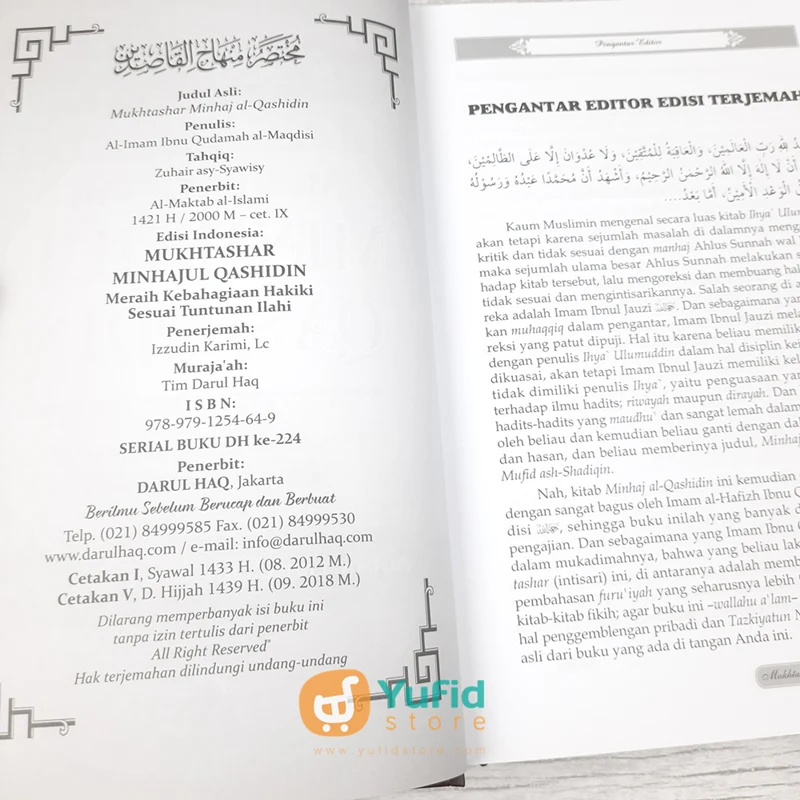 مُخْتَصَرُ مِنْهَاجِ الْقَاصِدِيْنَ
Judul Asli:
Mukhtashar Minhaj al-Qashidin
Penulis:
Al-Imam Ibnu Qudamah al-Maqdisi
Tahqiq:
Zuhair asy-Syawisy
Penerbit:
Al-Maktab al-Islami
1421 H / 2000 M – cet. IX
Edisi Indonesia:
MUKHTASHAR
MINHAJUL QASHIDIN
Meraih Kebahagiaan Hakiki
Sesuai Tuntunan Ilahi
Penerjemah:
Izzudin Karimi, Lc
Muraja'ah:
Tim Darul Haq
I S B N:
978-979-1254-64-9
SERIAL BUKU DH ke-224
Penerbit:
DARUL HAQ, Jakarta
Berilmu Sebelum Berucap dan Berbuat
Telp. (021) 84999585 Fax. (021) 84999530
www.darulhaq.com / e-mail: info@darulhaq.com
Cetakan I, Syawal 1433 H. (08. 2012 M.)
Cetakan V, D. Hijjah 1439 H. (09. 2018 M.)
Dilarang memperbanyak isi buku ini
tanpa izin tertulis dari penerbit
All Right Reserved"
Hak terjemahan dilindungi undang-undang
Pengantar Editor
PENGANTAR EDITOR EDISI TERJEMAH
لِلّٰهِ رَبِّ الْعَالَمِيْنَ، وَالْعَاقِبَةُ لِلْمُتَّقِيْنَ، وَلَا عُدْوَانَ إِلَّا عَلَى الظَّالِمِيْنَ،
أَنْ لَا إِلٰهَ إِلَّا اللهُ الرَّحْمٰنُ الرَّحِيْمُ، وَأَشْهَدُ أَنَّ مُحَمَّدًا عَبْدُهُ وَرَسُوْلُهُ
الْوَعْدِ الْأَمِيْنُ، أَمَّا بَعْدُ....
Kaum Muslimin mengenal secara luas kitab Ihya` Ulum
akan tetapi karena sejumlah masalah di dalamnya meng
kritik dan tidak sesuai dengan manhaj Ahlus Sunnah wal
maka sejumlah ulama besar Ahlus Sunnah melakukan s
hadap kitab tersebut, lalu mengoreksi dan membuang hal
tidak sesuai dan mengintisarikannya. Salah seorang di a
reka adalah Imam Ibnul Jauzi. Dan sebagaimana yan
kan muhaqqiq dalam pengantar, Imam Ibnul Jauzi mela
reksi yang patut dipuji. Hal itu karena beliau memilik
dengan penulis Ihya` Ulumuddin dalam hal disiplin kei
dikuasai, akan tetapi Imam Ibnul Jauzi memiliki kel
tidak dimiliki penulis Ihya`, yaitu penguasaan yan
terhadap ilmu hadits; riwayah maupun dirayah. Dan
hadits-hadits yang maudhu` dan sangat lemah dalam
oleh beliau dan kemudian beliau ganti dengan dal
dan hasan, dan beliau memberinya judul, Minhaj
Mufid ash-Shadiqin.
Nah, kitab Minhaj al-Qashidin ini kemudian
dengan sangat bagus oleh Imam al-Hafizh Ibnu Q
disi, sehingga buku inilah yang banyak d
pengajian. Dan sebagaimana yang Imam Ibnu
dalam mukadimahnya, bahwa yang beliau lak
tashar (intisari) ini, di antaranya adalah mem
pembahasan furu`iyah yang seharusnya lebih
kitab-kitab fikih; agar buku ini –wallahu a`lam–
hal penggemblengan pribadi dan Tazkiyatun N
asli dari buku yang ada di tangan Anda ini.
Mukhta
Yufid
store
www.yufidstore.com